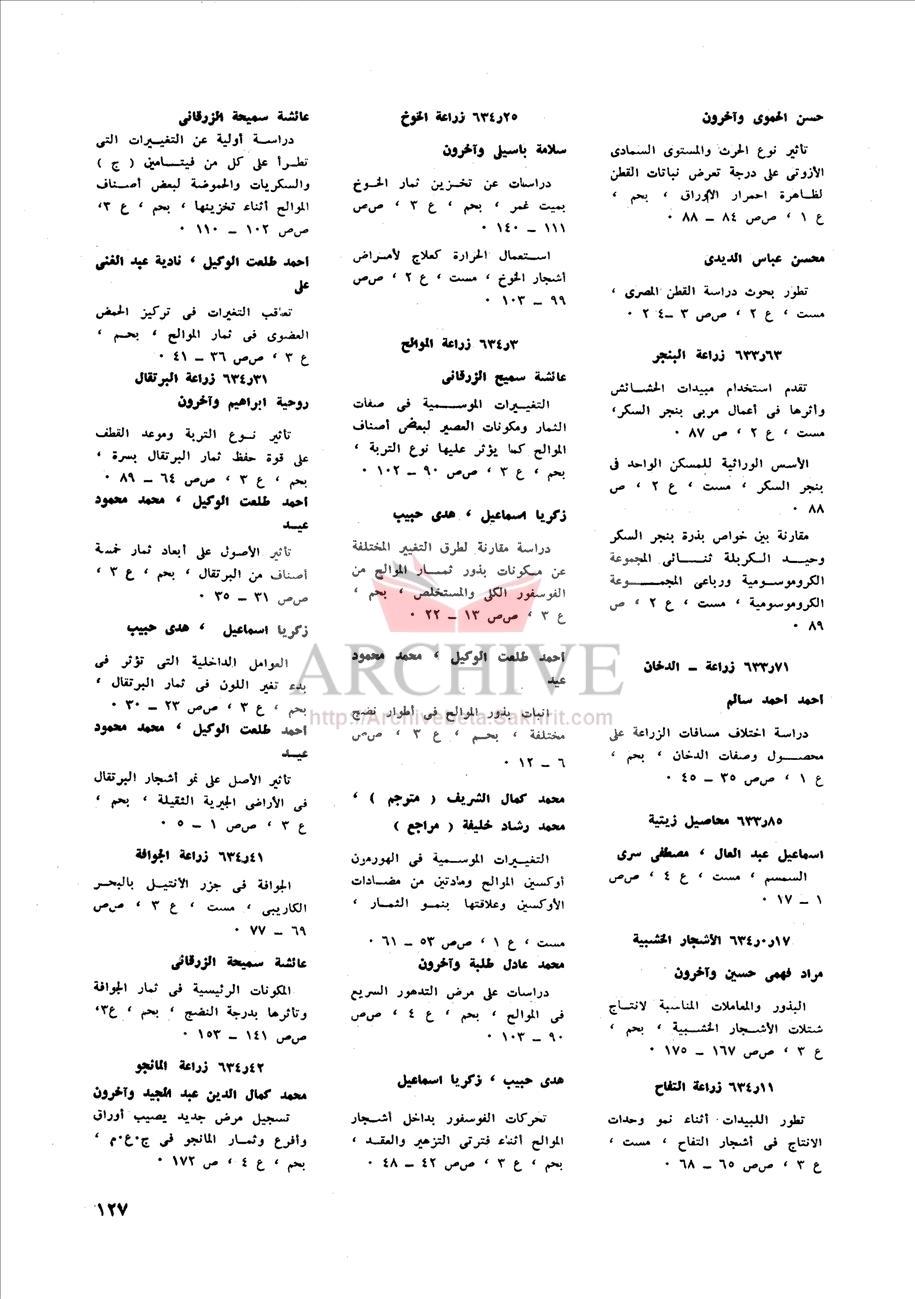 حسن الحموى وآخرون
تأثير نوع الحرث والمستوى السمادى
الأزوتى على درجة تعرض نباتات القطن
لظاهرة احمرار الأوراق ، بحم ،
ع ١ ، صص ٨٤ – ٨٨ ٠
محسن عباس الديدى
تطور بحوث دراسة القطن المصرى ،
مست ، ع ٢ ، صص ٣ – ٢٤ ٠
٦٣ر٦٣٣ زراعة البنجر
تقدم استخدام مبيدات الحشائش
وأثرها فى أعمال مربى بنجر السكر،
مست ، ع ٢ ، ص ٨٧ ٠
الأسس الوراثية للمسكن الواحد فى
بنجر السكر ، مست ، ع ٢ ، ص
٨٨ ٠
مقارنة بين خواص بذرة بنجر السكر
وحيد الكربلة ثنائى المجموعة
الكروموسومية ورباعى المجموعة
الكروموسومية ، مست ، ع ٢ ، ص
٨٩ ٠
٧١ر٦٣٣ زراعة – الدخان
أحمد أحمد سالم
دراسة اختلاف مسافات الزراعة على
محصول وصفات الدخان ، بحم ،
ع ١ ، صص ٣٥ – ٤٥ ٠
٨٥ر٦٣٣ محاصيل زيتية
اسماعيل عبد العال ، مصطفى سرى
السمسم ، مست ، ع ٤ ، صص
١ – ١٧ ٠
١٧ر٠ر٦٣٤ الأشجار الخشبية
مراد فهمى حسين وآخرون
البذور والمعاملات المناسبة لانتاج
شتلات الأشجار الخشبية ، بحم ،
ع ٣ ، صص ١٦٧ – ١٧٥ ٠
١١ر٦٣٤ زراعة التفاح
تطور اللبيدات أثناء نمو وحدات
الانتاج فى أشجار التفاح ، مست ،
ع ٣ ، صص ٦٥ – ٦٨ ٠
٢٥ر٦٣٤ زراعة الخوخ
سلامة باسيلى وآخرون
دراسات عن تخزين ثمار الخوخ
بميت غمر ، بحم ، ع ٣ ، صص
١١١ – ١٤٠ ٠
استعمال الحرارة كعلاج لأمراض
أشجار الخوخ ، مست ، ع ٢ ، صص
٩٩ – ١٠٣ ٠
٣ر٦٣٤ زراعة الموالح
عائشة سميح الزرقانى
التغييرات الموسمية فى صفات
الثمار ومكونات العصير لبعض أصناف
الموالح كما يؤثر عليها نوع التربة ،
بحم ، ع ٣ ، صص ٩٠ – ١٠٢ ٠
زكريا اسماعيل ، هدى حبيب
دراسة مقارنة لطرق التغيير المختلفة
عن مكونات بذور ثمار الموالح من
الفوسفور الكلى والمستخلص ، بحم ،
ع ٣ ، صص ١٣ – ٢٢ ٠
أحمد طلعت الوكيل ، محمد محمود
عيد
انبات بذور الموالح فى أطوار نضج
مختلفة ، بحم ، ع ٣ ، صص
٦ – ١٢ ٠
محمد كمال الشريف ( مترجم ) ،
محمد رشاد خليفة ( مراجع )
التغييرات الموسمية فى الهورمون
أوكسين الموالح ومادتين من مضادات
الأوكسين وعلاقتها بنمو الثمار ،
مست ، ع ١ ، صص ٥٣ – ٦١ ٠
محمد عادل طلبة وآخرون
دراسات على مرض التدهور السريع
فى الموالح ، بحم ، ع ٤ ، صص
٩٠ – ١٠٣ ٠
هدى حبيب ، زكريا اسماعيل
تحركات الفوسفور بداخل أشجار
الموالح أثناء فترتى التزهير والعقد ،
بحم ، ع ٣ ، صص ٤٢ – ٤٨ ٠
عائشة سميحة الزرقانى
دراسة أولية عن التغييرات التى
تطرأ على كل من فيتامين ( ج )
والسكريات والحموضة لبعض أصناف
الموالح أثناء تخزينها ، بحم ، ع ٣،
صص ١٠٢ – ١١٠ ٠
أحمد طلعت الوكيل ، نادية عبد الغنى
على
تعاقب التغيرات فى تركيز الحمض
العضوى فى ثمار الموالح ، بحم ،
ع ٣ ، صص ٣٦ – ٤١ ٠
٣١ر٦٣٤ زراعة البرتقال
روحية ابراهيم وآخرون
تأثير نوع التربة وموعد القطف
على قوة حفظ ثمار البرتقال بسرة ،
بحم ، ع ٣ ، صص ٦٤ – ٨٩ ٠
أحمد طلعت الوكيل ، محمد محمود
عيد
تأثير الأصول على أبعاد ثمار خمسة
أصناف من البرتقال ، بحم ، ع ٣ ،
صص ٣١ – ٣٥ ٠
زكريا اسماعيل ، هدى حبيب
العوامل الداخلية التى تؤثر فى
بدء تغير اللون فى ثمار البرتقال ،
بحم ، ع ٣ ، صص ٢٣ – ٣٠ ٠
أحمد طلعت الوكيل ، محمد محمود
عيد
تأثير الأصل على نمو أشجار البرتقال
فى الأراضى الجيرية الثقيلة ، بحم ،
ع ٣ ، صص ١ – ٥ ٠
٤١ر٦٣٤ زراعة الجوافة
الجوافة فى جزر الأنتيل بالبحر
الكاريبى ، مست ، ع ٣ ، صص
٦٩ – ٧٧ ٠
عائشة سميحة الزرقانى
المكونات الرئيسية فى ثمار الجوافة
وتأثرها بدرجة النضج ، بحم ، ع٣،
صص ١٤١ – ١٥٣ ٠
٤٢ر٦٣٤ زراعة المانجو
محمد كمال الدين عبد المجيد وآخرون
تسجيل مرض جديد يصيب أوراق
وأفرع وثمار المانجو فى ج٠ع٠م ،
بحم ، ع ٤ ، ص ١٧٢ ٠
ARCHIVE
http://Archivebeta.Sakhrit.com
١٢٧